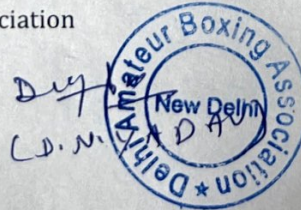 ciation
Delhi Amateur Boxing Association ★
New Delhi
(D.N. YADAV)